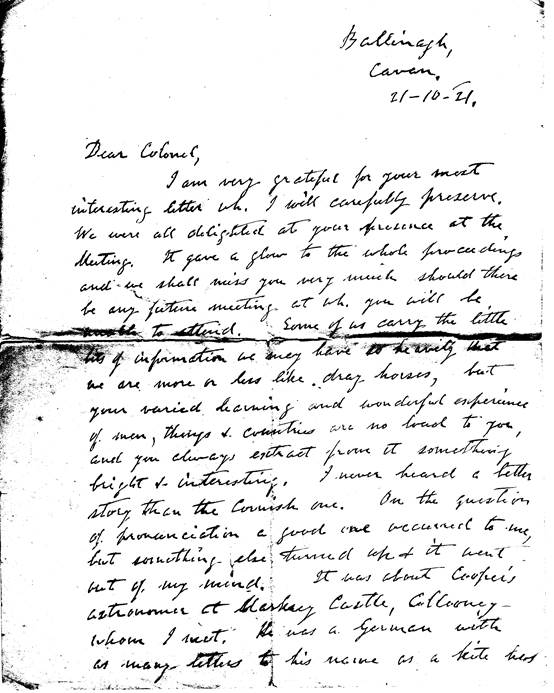 Ballinagh,
Cavan.
21-10-21.
Dear Colonel,
I am very grateful for your most
interesting letter wh. I will carefully preserve.
We were all delighted at your presence at the
Meeting. It gave a glow to the whole proceedings
and we shall miss you very much should there
be any future meeting at wh. you will be
unable to attend. Some of us carry the little
bits of information we may have so heavily that
we are more or less like dray horses, but
your varied learning and wonderful experience
of men, things & countries are no load to you,
and you always extract from it something
bright & interesting. I never heard a better
story than the Cornish one. On the question
of pronunciation a good one occurred to me,
but something else turned up & it went
out of my mind. It was about Cooper's
astronomer at Markree Castle, Collooney -
whom I met. He was a German with
as many letters to his name as a kite has